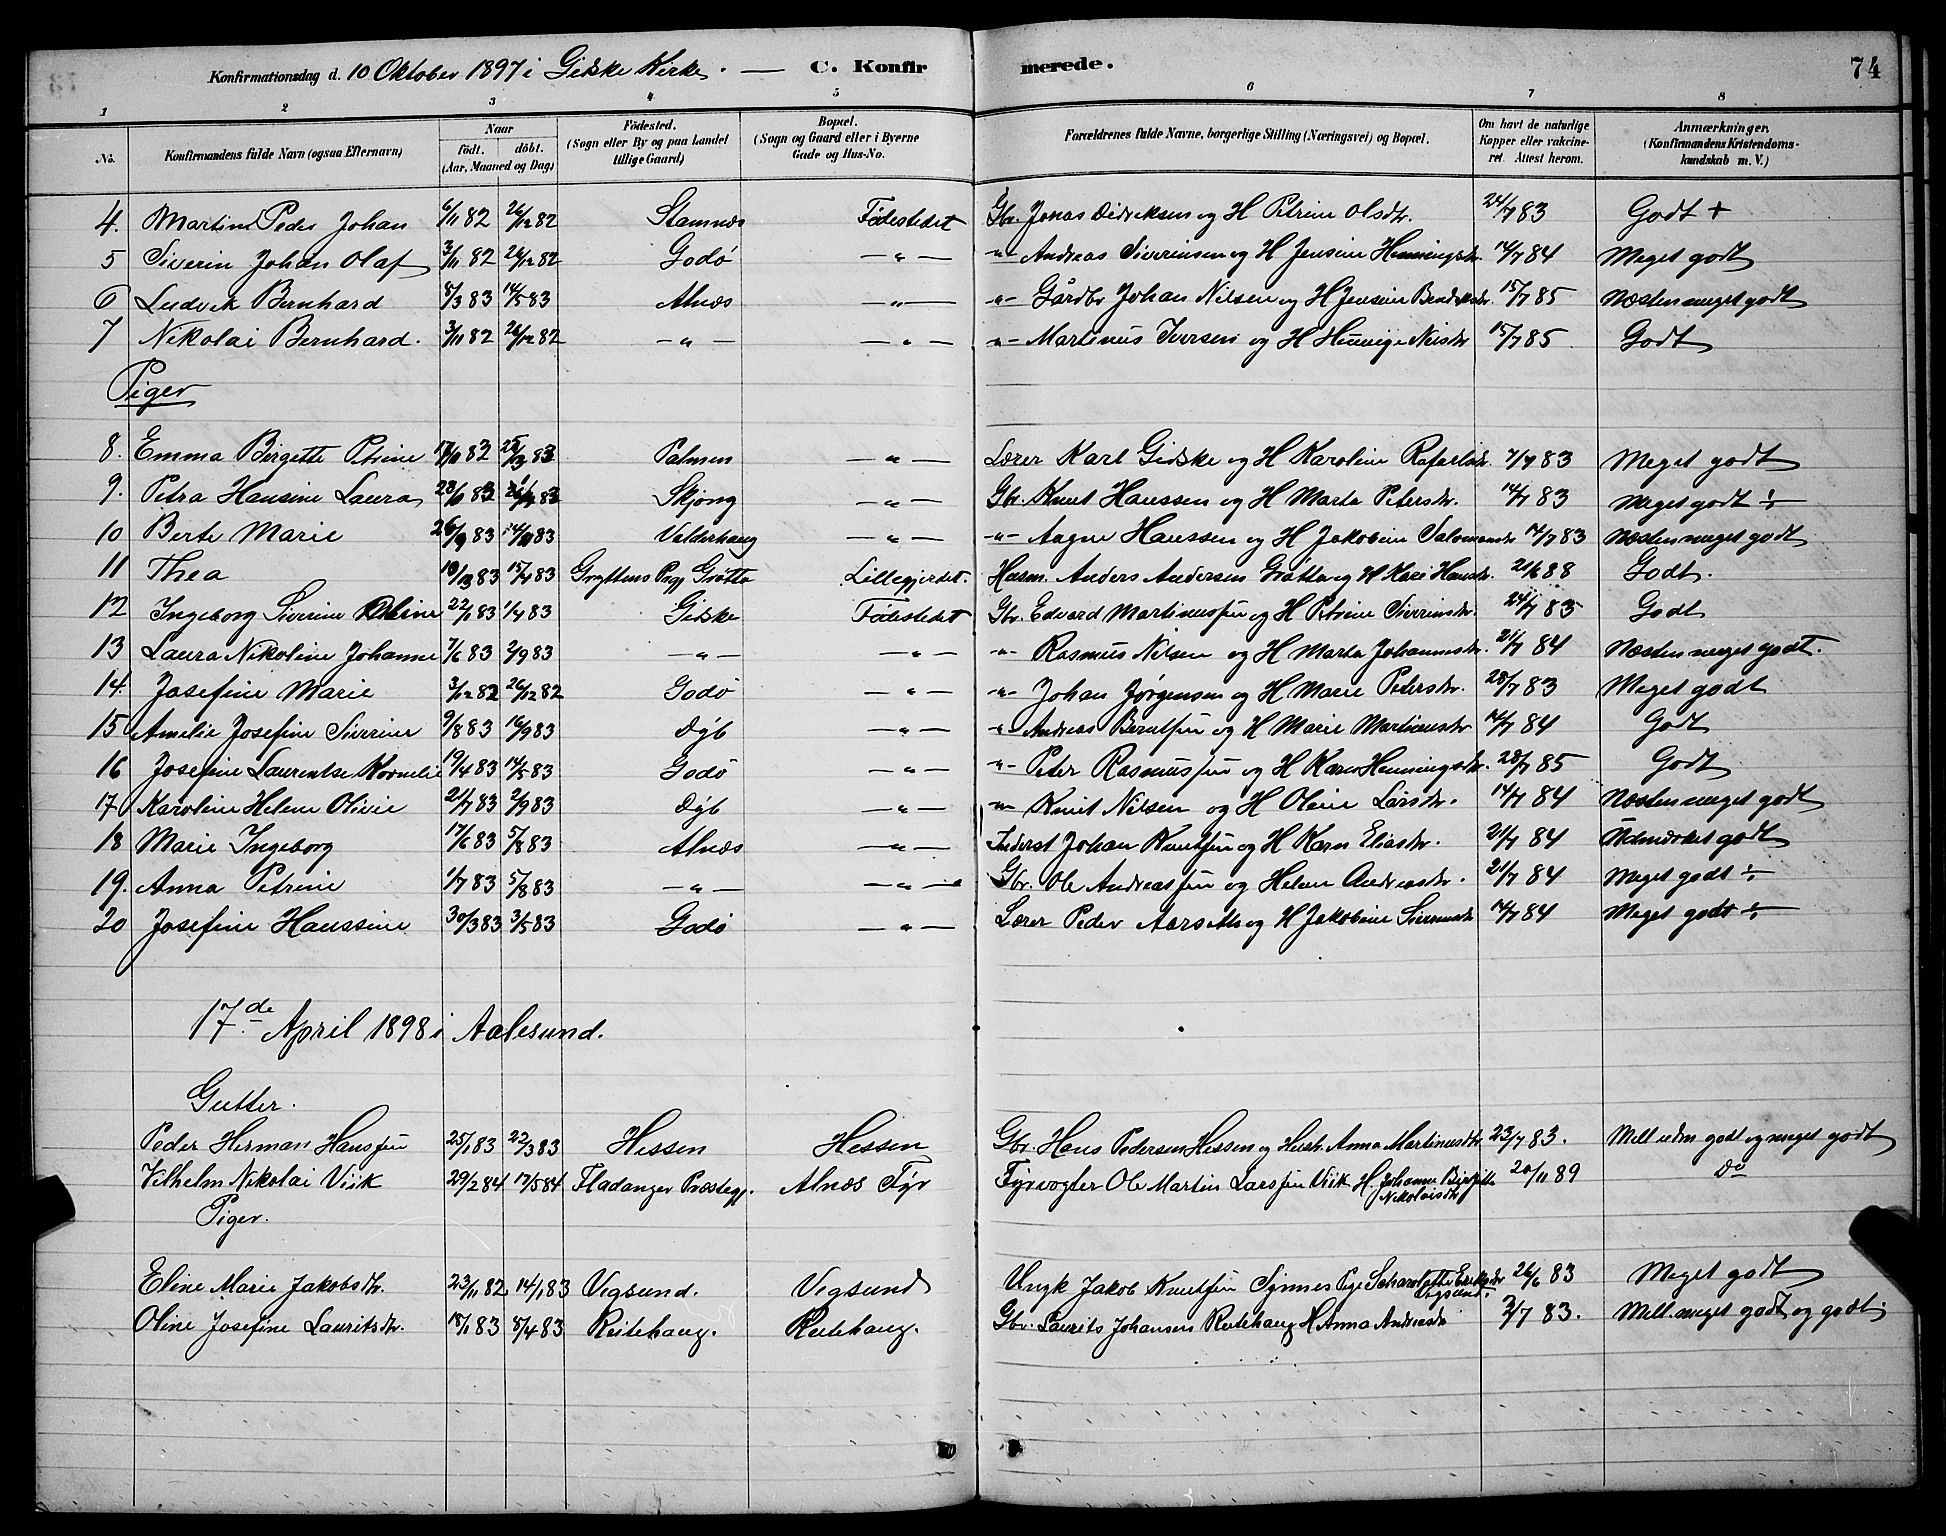 Konfirmationsdag d. 10 Oktober 1897 i Giske Kirke. — C. Konfirmerede. 74
1 2 3 4 5 6 7 8
No. Konfirmandens fulde Navn (ogsaa Efternavn) Naar födt. döbt. (Aar, Maaned og Dag) Födested. (Sogn eller By og paa Landet tillige Gaard) Bopæl. (Sogn og Gaard eller i Byerne Gade og Hus-No.) Forældrenes fulde Navne, borgerlige Stilling (Næringsvei) og Bopæl. Om havt de naturlige Kopper eller vakcineret. Attest herom. Anmærkninger. (Konfirmandens Kristendomskundskab m. V.)
4. Martin Peder Johan 6/11 82 26/12 82 Stamnes Fødestedet Gbr. Jonas Didriksen og H Petrine Olsdtr. 24/7 83 Godt +
5 Siverin Johan Olaf 3/11 82 26/12 82 Godø — " — -"- Andreas Siverinsen og H Jensine Henningsdtr. 14/7 84 Meget godt
6 Ludvik Bernhard 8/3 83 14/5 83 Alnæs — " — -"- Gårdbr Johan Nilsen og H Jensine Bendiksdtr. 15/7 85 Næsten meget godt
7 Nikolai Bernhard. 3/11 82 26/12 82 — " — — " — -"- Martinus Iversen og H 15/7 85 Godt
Piger
8. Emma Birgitte Petrine 82 83 Palmen — " — Lærer Karl Gidske og H Karoline Rafaelsdtr. 7/7 83 Meget godt
9. Petra Hansine Laura 83 83 Skjong — " — Gbr. Knut Hanssen og H Marta Petersdtr. 14/7 83 Meget godt ÷
10 Berte Marie 26/9 83 83 Valderhaug — " — -"- Aagne Hanssen og H Jakobine Salomonsdtr 14/7 83 Næsten meget godt
11 Thea 83 15/4 83 Gryttens Pgj Grøtta Lillegjerdet. Husm. Anders Andersen Grøtta og H Kari Hansdtr. 21/6 88 Godt.
12 Ingeborg Siverine Oline 22/1 83 1/4 83 Giske Fødestedet Gbr. Edvard Martinussen og H Petrine Siverinsdtr. 24/7 83 Godt
13 Laura Nikoline Johanne 7/6 83 2/9 83 — " — — " — -"- Rasmus Nilsen og H Marta Johannsdtr. 21/7 84 Næsten meget godt.
14. Josefine Marie 3/12 82 26/12 82 Godø — " — -"- Johan Jørgensen og H Marie Petersdtr. 28/7 83 Meget godt
15 Amelie Josefine Siverine 9/8 83 16/9 83 Dyb — " — -"- Andreas Berntsen og H Marie Martinusdtr 14/7 84 Godt
16 Josefine Laurentse Kornelie 19/4 83 14/5 83 Godø — " — -"- Peter Rasmussen og H Karen Henningsdtr. 28/7 85 Godt
17 Karoline Helene Olivie 21/7 83 2/9 83 Dyb — " — -"- Knut Nilsen og H Oline Larsdtr. 14/7 84 Næsten meget godt
18 Marie Ingeborg 17/6 83 5/8 83 Alnæs — " — Inderst Johan Knutsen og H Karn Eliasdtr. 21/7 84 Udmærket godt
19. Anna Petrine 1/7 83 5/8 83 — " — — " — Gbr. Ole Andreassen og Helene Andreasdtr. 21/7 84 Meget godt ÷
20 Josefine Hanssine 30/3 83 3/5 83 Godø — " — Lærer Peder Aarseth og H Jakobine Siverinsdtr 14/7 84 Meget godt ÷
17.de April 1898 i Aalesund.
Gutter.
Peder Herman Hanssen 25/1 83 22/3 83 Hessen Hessen Gbr. Hans Pedersen Hessen og Hustr. Anna Martinusdtr 23/7 83. Mell udm godt og meget godt
Vilhelm Nikolai Viik 29/2 84 17/5 84 Fladanger Præstegj. Alnæs Fyr Fyrvogter Ole Martin Larssen Viik H. Johanne Birgitte Nikolaisdtr 20/11 89 Do
Piger.
Eline Marie Jakobsdtr. 23/11 82 14/1 83 Vegsund. Vegsund Ungk Jakob Knutsen Synnes Pige Scharlotte Eriksdtr Vegsund. 26/6 83 Meget godt
Oline Josefine Lauritsdtr. 18/1 83 8/4 83 Reitehaug. Reitehaug. Gbr. Laurits Johansen Reitehaug H Anna Andreasdtr 2/7 83. Mell. meget godt og godt.